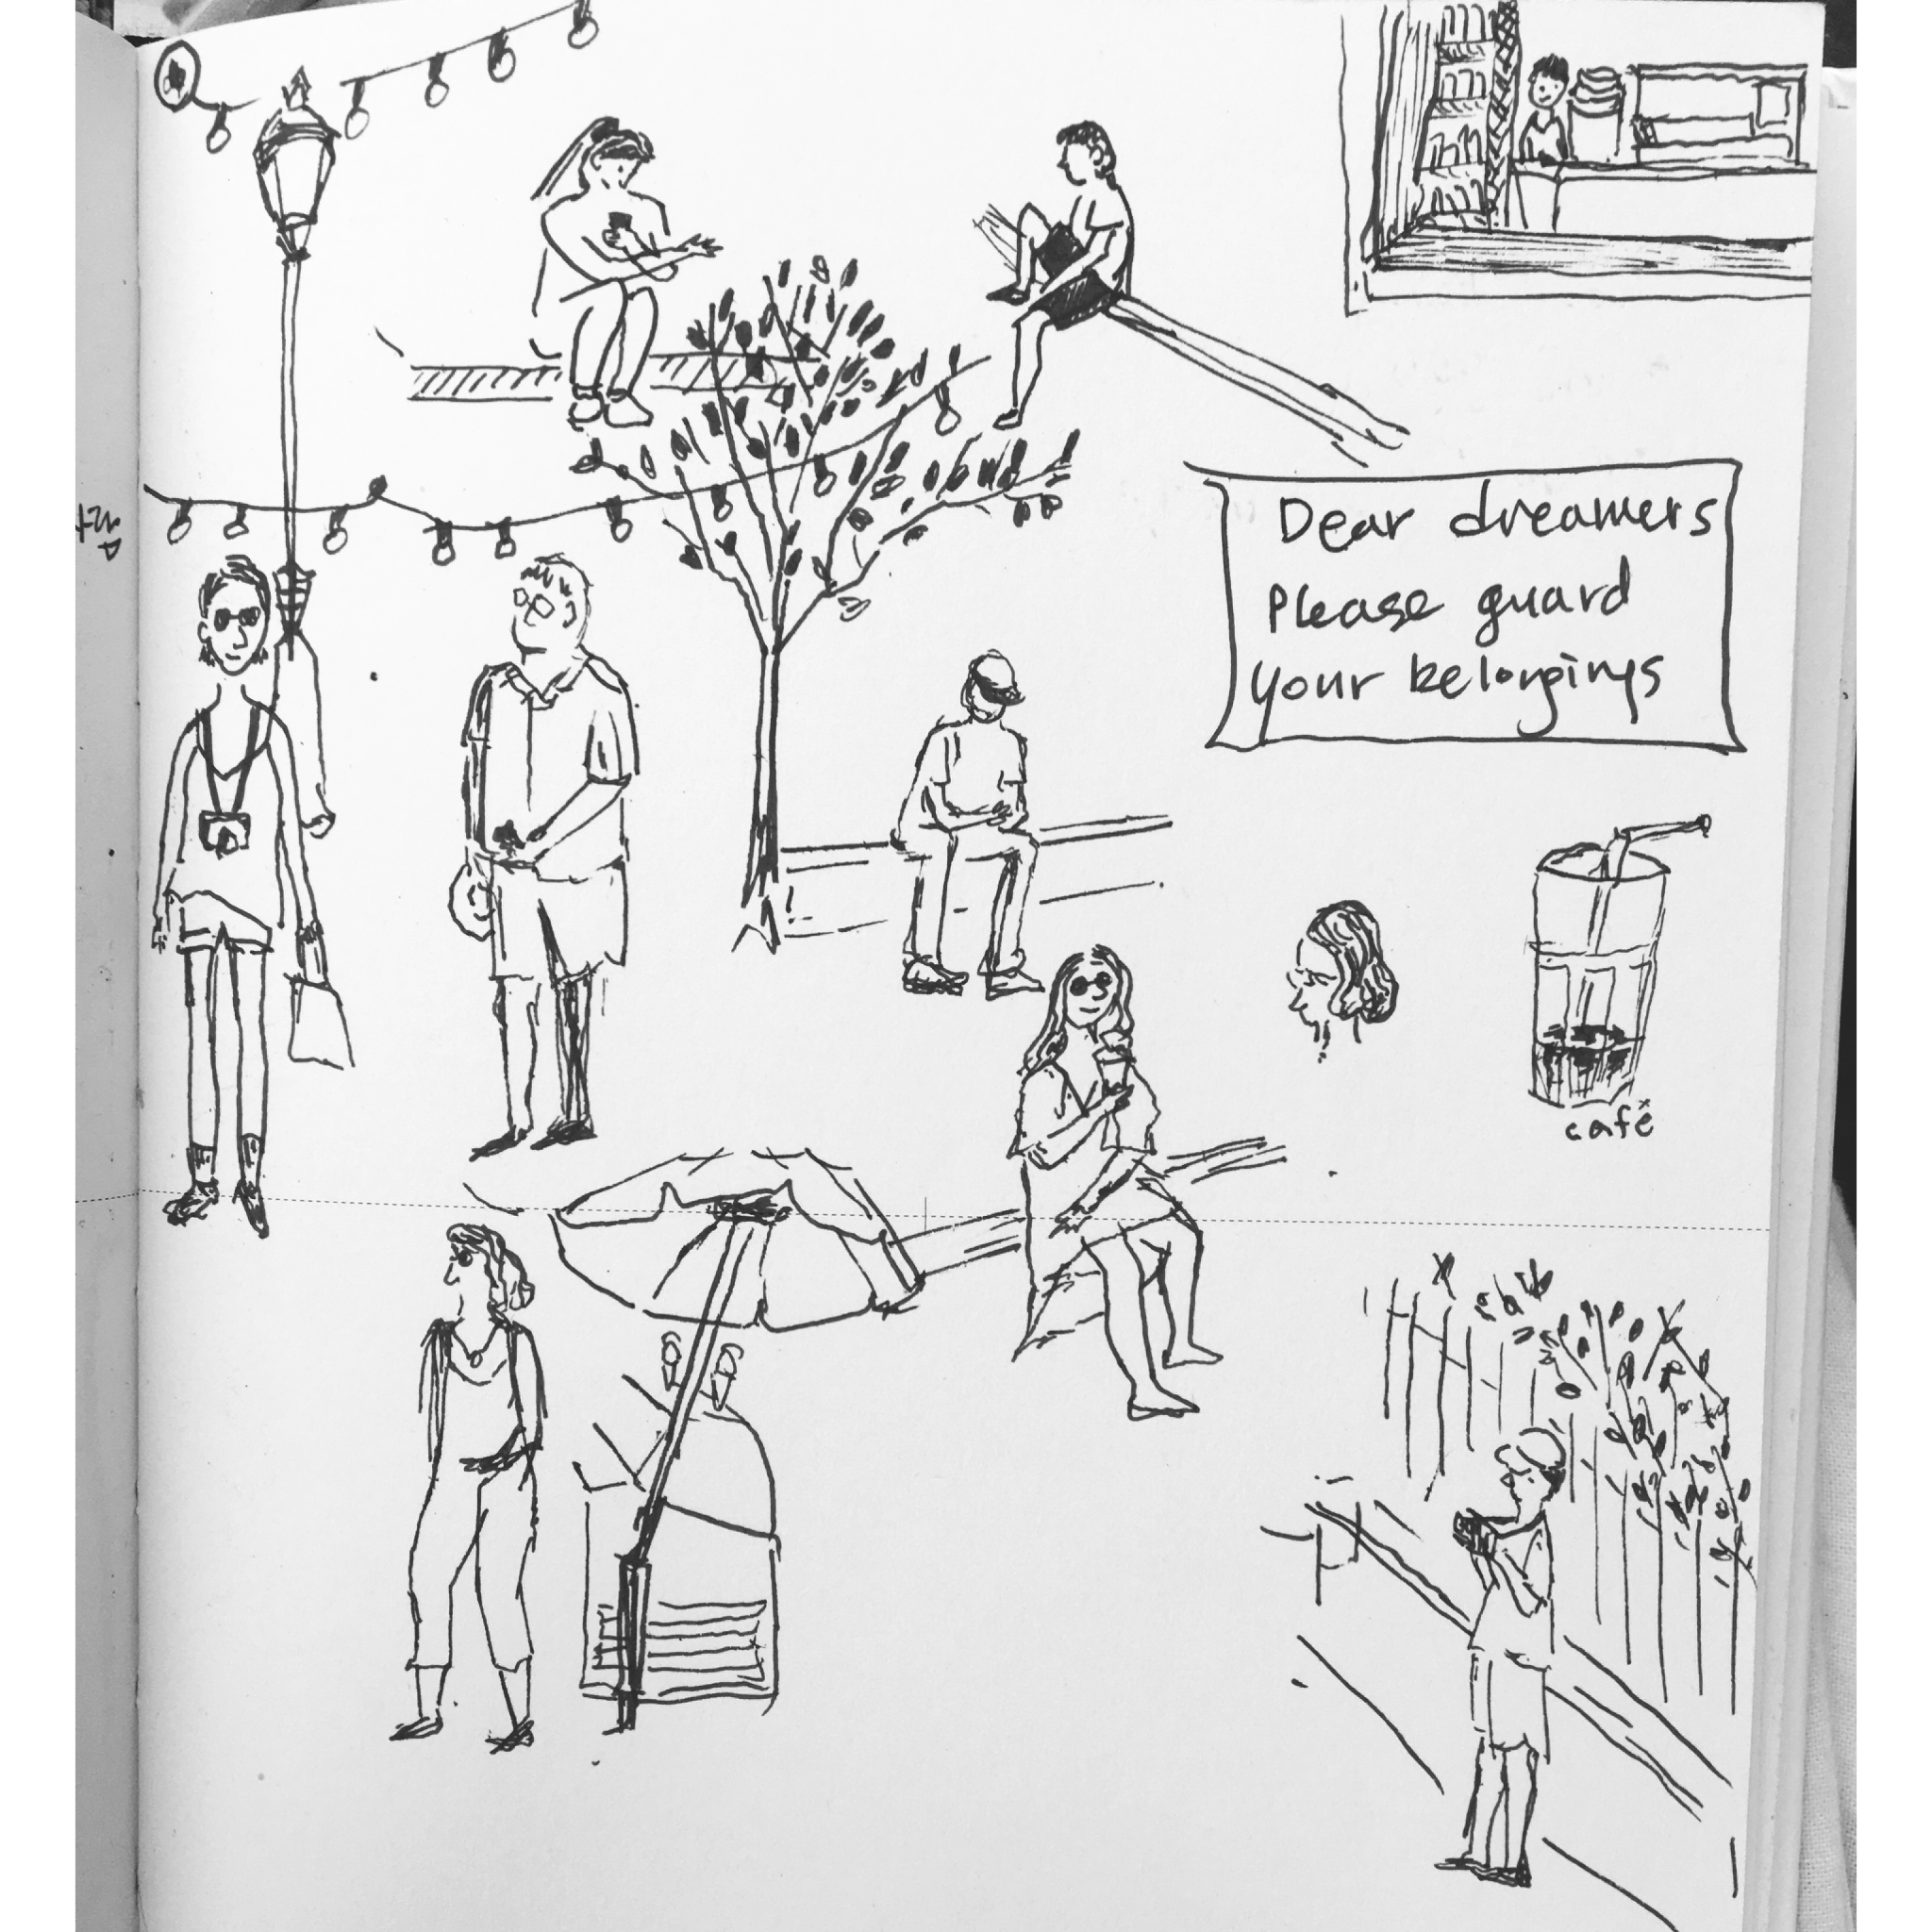 Dear dreamers
Please guard
your belongings
café